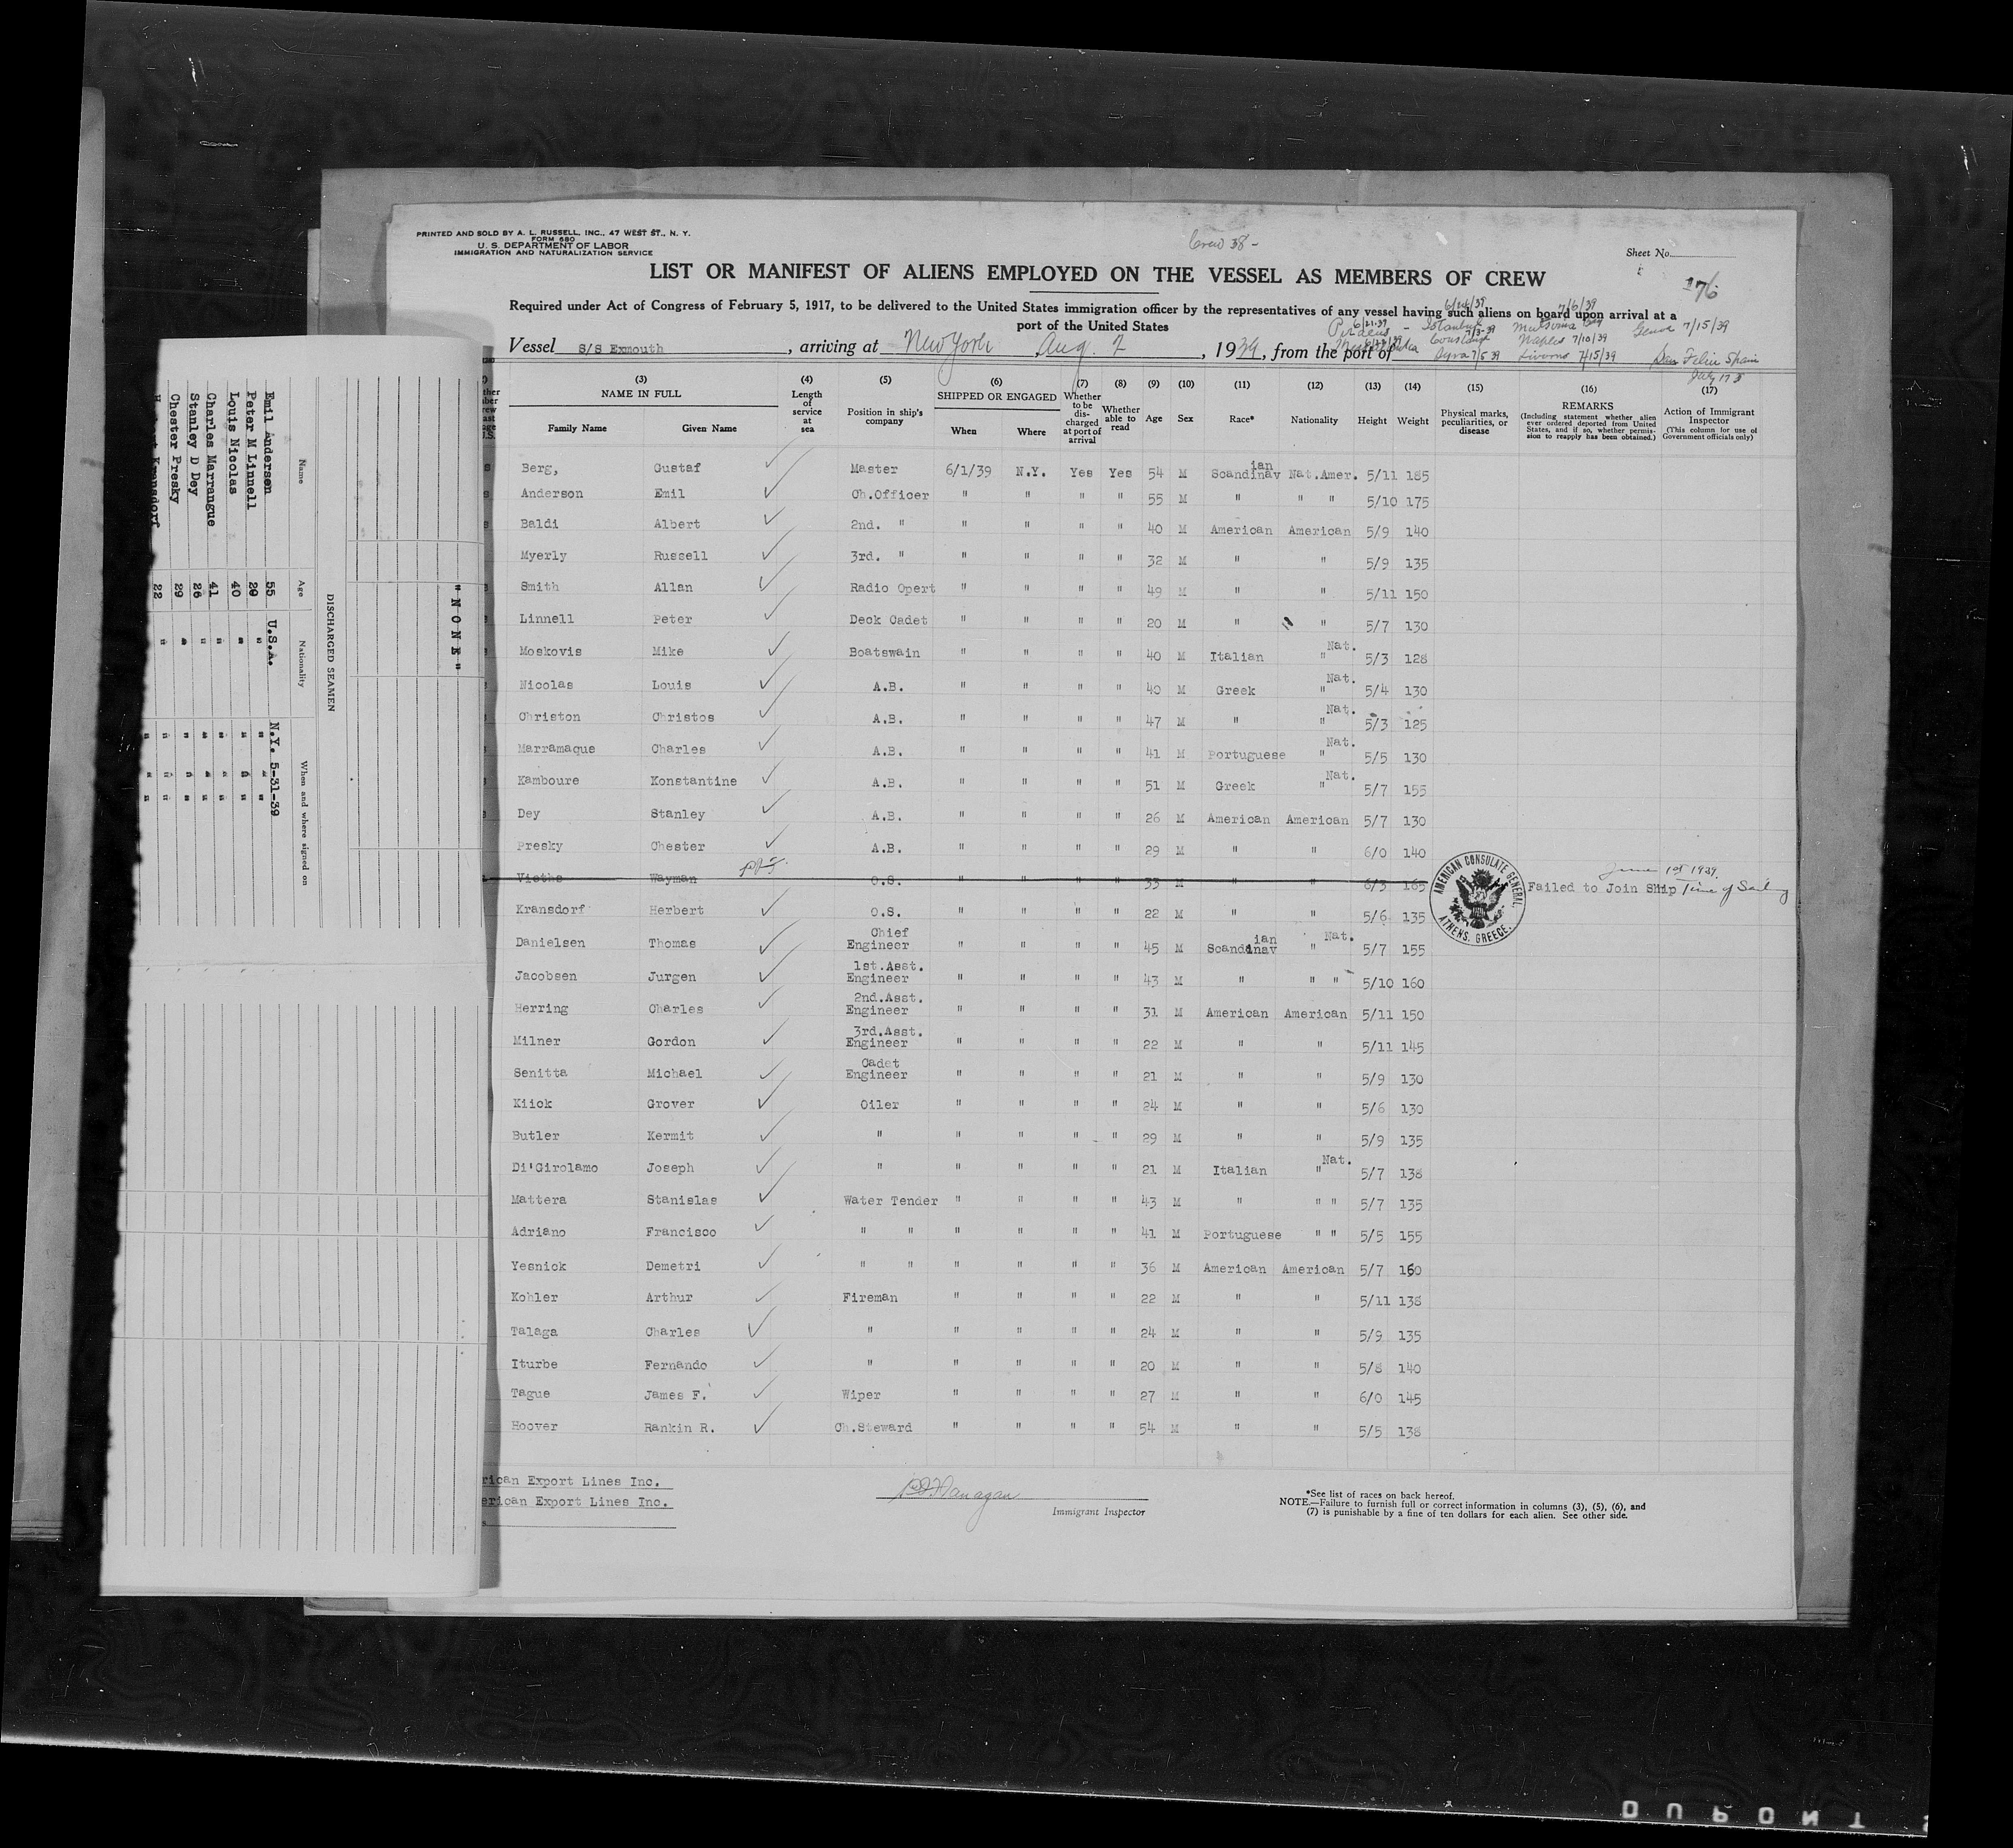 PRINTED AND SOLD BY A. L. RUSSELL, INC., 47 WEST ST., N. Y.
FORM 680
U. S. DEPARTMENT OF LABOR
IMMIGRATION AND NATURALIZATION SERVICE
Crew 38 -
Sheet No.
176
LIST OR MANIFEST OF ALIENS EMPLOYED ON THE VESSEL AS MEMBERS OF CREW
Required under Act of Congress of February 5, 1917, to be delivered to the United States immigration officer by the representatives of any vessel having such aliens on board upon arrival at a
port of the United States
Vessel S/S Exmouth, arriving at New York, Aug. 2, 1939, from the port of
Istanbul
7/6/39
Genoa 7/15/39
Naples 7/10/39
Syra 7/5 39 Livorno 7/15/39 San Feliu Spain
July 17
(3) NAME IN FULL
Family Name Given Name
(4) Length of service at sea
(5) Position in ship's company
(6) SHIPPED OR ENGAGED
When Where
(7) Whether to be discharged at port of arrival
(8) Whether able to read
(9) Age
(10) Sex
(11) Race*
(12) Nationality
(13) Height
(14) Weight
(15) Physical marks, peculiarities, or disease
(16) REMARKS
(Including statement whether alien ever ordered deported from United States, and if so, whether permission to reapply has been obtained.)
(17) Action of Immigrant Inspector
(This column for use of Government officials only)
Berg, Gustaf Master 6/1/39 N.Y. Yes Yes 54 M Scandinavian Nat.Amer. 5/11 185
Anderson Emil Ch.Officer " " " " 55 M " " " 5/10 175
Baldi Albert 2nd. " " " " " 40 M American American 5/9 140
Myerly Russell 3rd. " " " " " 32 M " " 5/9 135
Smith Allan Radio Opert " " " " 49 M " " 5/11 150
Linnell Peter Deck Cadet " " " " 20 M " " 5/7 130
Moskovis Mike Boatswain " " " " 40 M Italian Nat. " 5/3 128
Nicolas Louis A.B. " " " " 40 M Greek Nat. " 5/4 130
Christon Christos A.B. " " " " 47 M " Nat. " 5/3 125
Marramaque Charles A.B. " " " " 41 M Portuguese Nat. " 5/5 130
Kamboure Konstantine A.B. " " " " 51 M Greek Nat. " 5/7 155
Dey Stanley A.B. " " " " 26 M American American 5/7 130
Presky Chester A.B. " " " " 29 M " " 6/0 140
Vieths Wayman O.S. " " " " 33 M " " 6/3 165 Failed to Join Ship Time of Sailing June 1st 1939.
Kransdorf Herbert O.S. " " " " 22 M " " 5/6 135
Danielsen Thomas Chief Engineer " " " " 45 M Scandinavian " Nat. 5/7 155
Jacobsen Jurgen 1st.Asst. Engineer " " " " 43 M " " " 5/10 160
Herring Charles 2nd.Asst. Engineer " " " " 31 M American American 5/11 150
Milner Gordon 3rd.Asst. Engineer " " " " 22 M " " 5/11 145
Senitta Michael Cadet Engineer " " " " 21 M " " 5/9 130
Kiick Grover Oiler " " " " 24 M " " 5/6 130
Butler Kermit " " " " " 29 M " " 5/9 135
Di'Girolamo Joseph " " " " " 21 M Italian Nat. " 5/7 138
Mattera Stanislas Water Tender " " " " 43 M " " " 5/7 135
Adriano Francisco " " " " " " 41 M Portuguese " " 5/5 155
Yesnick Demetri " " " " " " 36 M American American 5/7 160
Kohler Arthur Fireman " " " " 22 M " " 5/11 138
Talaga Charles " " " " " 24 M " " 5/9 135
Iturbe Fernando " " " " " 20 M " " 5/8 140
Tague James F. Wiper " " " " 27 M " " 6/0 145
Hoover Rankin R. Ch.Steward " " " " 54 M " " 5/5 138
AMERICAN CONSULATE GENERAL
ATHENS, GREECE.
rican Export Lines Inc.
erican Export Lines Inc.
Flanagan
Immigrant Inspector
*See list of races on back hereof.
NOTE.—Failure to furnish full or correct information in columns (3), (5), (6), and
(7) is punishable by a fine of ten dollars for each alien. See other side.
"NONE"
DISCHARGED SEAMEN
Name Age Nationality When and where signed on
Emil Andersen 55 U.S.A. N.Y. 5-31-39
Peter M Linnell 20 " " " "
Louis Nicolas 40 " " " "
Charles Marrangue 41 " " " "
Stanley D Dey 26 " " " "
Chester Presky 29 " " " "
Kransdorf 22 " " " "
DUPONT